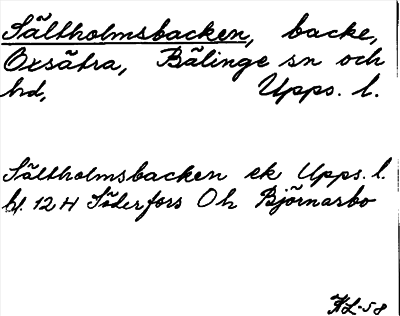 Sältholmsbacken, backe,
Oxsätra, Bälinge sn och
hd, Upps. l.
Sältholmsbacken ek Upps. l.
bl. 12 H Söderfors Oh Björnarbo
HL-58